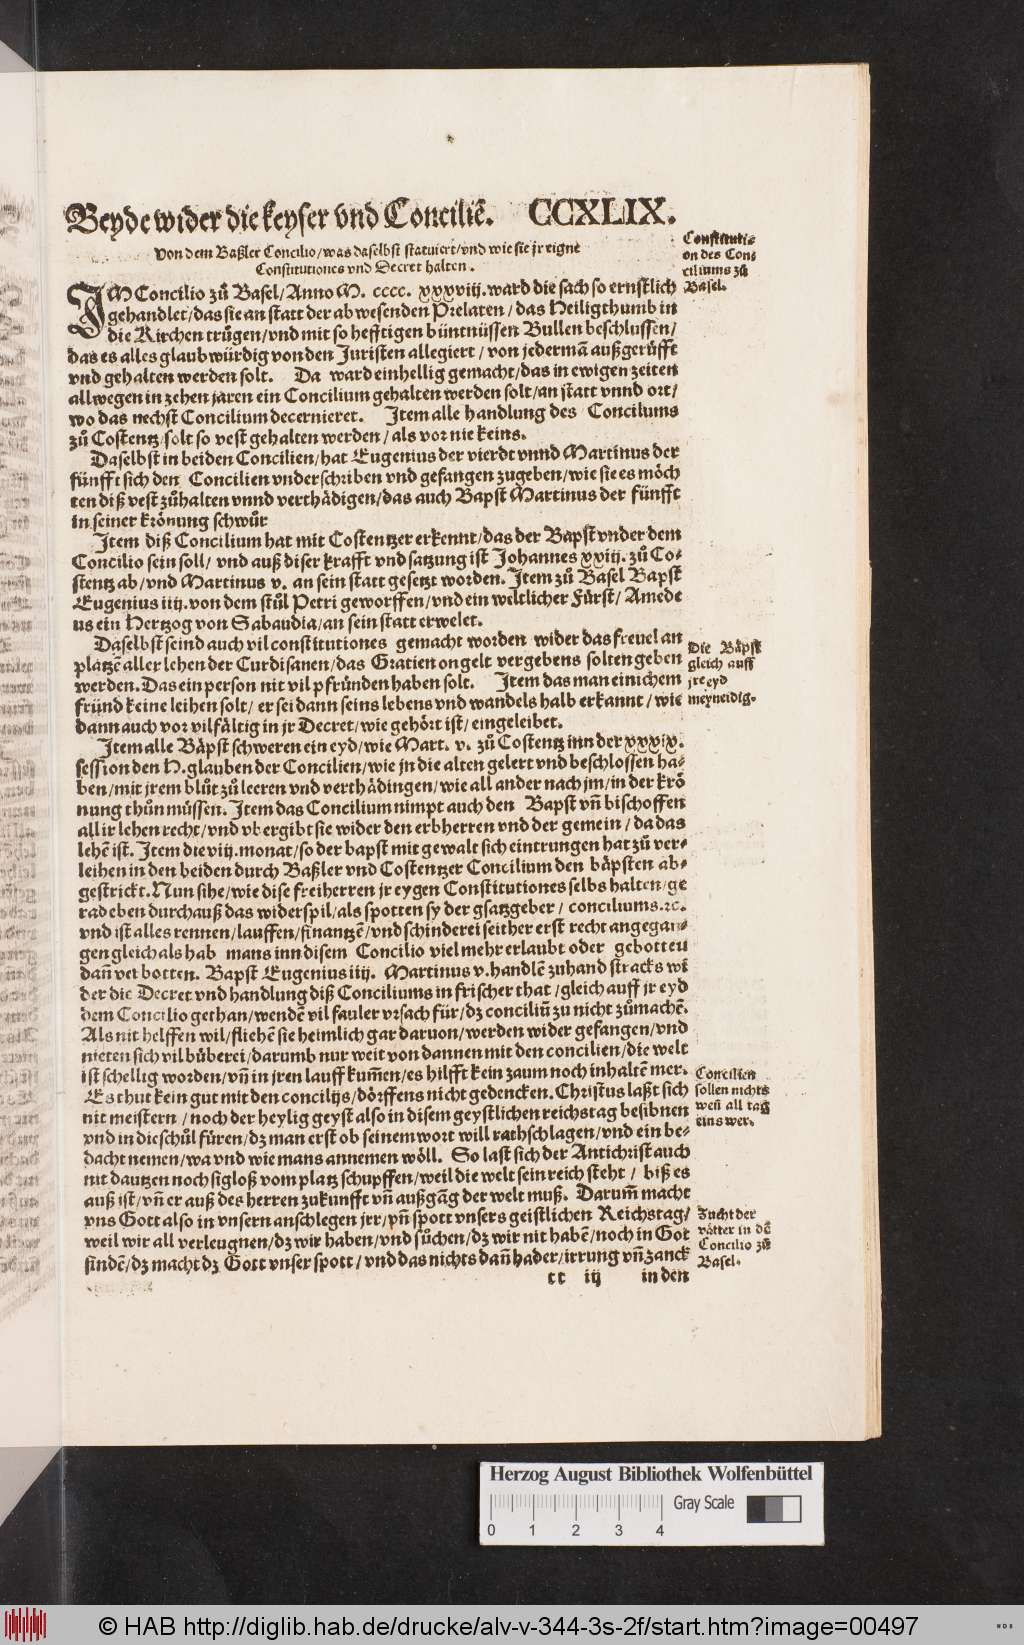 Beyde wider die keyser vnd Conciliē. CCXLIX.
Von dem Baßler Concilio/was daselbst statuiert/vnd wie sie jr eigne
Constitutiones vnd Decret halten.
Constituti-
on des Con-
ciliums zů
Basel.
IM Concilio zů Basel/Anno M. cccc. xxxviij. ward die sach so ernstlich
gehandlet/das sie an statt der abwesenden Prelaten/das Heiligthumb in
die Kirchen trůgen/vnd mit so hefftigen büntnüssen Bullen beschlussen/
das es alles glaubwürdig von den Juristen allegiert/von jedermā außgerüfft
vnd gehalten werden solt. Da ward einhellig gemacht/das in ewigen zeiten
allwegen in zehen jaren ein Concilium gehalten werden solt/an statt vnnd ort/
wo das nechst Concilium decernieret. Item alle handlung des Conciliums
zů Costentz/solt so vest gehalten werden/als vor nie keins.
Daselbst in beiden Concilien/hat Eugenius der vierdt vnnd Martinus der
fünfft sich den Concilien vnderschriben vnd gefangen zugeben/wie sie es möch
ten diß vest zůhalten vnnd verthädigen/das auch Bapst Martinus der fünfft
in seiner krönung schwůr
Item diß Concilium hat mit Costentzer erkennt/das der Bapst vnder dem
Concilio sein soll/vnd auß diser krafft vnd satzung ist Johannes xxiij. zů Co-
stentz ab/vnd Martinus v. an sein statt gesetzt worden. Item zů Basel Bapst
Eugenius iiij. von dem stůl Petri geworffen/vnd ein weltlicher Fürst/Amede
us ein Hertzog von Sabaudia/an sein statt erwelet.
Daselbst seind auch vil constitutiones gemacht worden wider das freuel an
platzē aller lehen der Curdisanen/das Gratien on gelt vergebens solten geben
werden. Das ein person nit vil pfründen haben solt. Item das man einichem
fründ keine leihen solt/er sei dann seins lebens vnd wandels halb erkannt/wie
dann auch vor vilfältig in jr Decret/wie gehört ist/eingeleibet.
Die Bäpst
gleich auff
jre eyd
meyneidig.
Item alle Bäpst schweren ein eyd/wie Mart. v. zů Costentz inn der xxxix.
session den H. glauben der Concilien/wie jn die alten gelert vnd beschlossen ha-
ben/mit jrem blůt zů leeren vnd verthädingen/wie all ander nach jm/in der krö
nung thůn müssen. Item das Concilium nimpt auch den Bapst vñ bischoffen
all ir lehen recht/vnd vbergibt sie wider den erbherren vnd der gemein/da das
lehē ist. Item die viij. monat/so der bapst mit gewalt sich eintrungen hat zů ver-
leihen in den beiden durch Baßler vnd Costentzer Concilium den bäpsten ab-
gestrickt. Nun sihe/wie dise freiherren jr eygen Constitutiones selbs halten/ge
rad eben durchauß das widerspil/als spotten sy der gsatzgeber/conciliums.ꝛc.
vnd ist alles rennen/lauffen/finantzē/vnd schinderei seither erst recht angegan-
gen gleich als hab mans inn disem Concilio viel mehr erlaubt oder gebotten
dañ verbotten. Bapst Eugenius iiij. Martinus v. handlē zuhand stracks wi
der die Decret vnd handlung diß Conciliums in frischer that/gleich auff jr eyd
dem Concilio gethan/wendē vil fauler vrsach für/dz conciliū zu nicht zůmachē.
Als nit helffen wil/fliehē sie heimlich gar daruon/werden wider gefangen/vnd
nieten sich vil büberei/darumb nur weit von dannen mit den concilien/die welt
ist schellig worden/vñ in jren lauff kum̄en/es hilfft kein zaum noch inhaltē mer.
Es thut kein gut mit den concilijs/dörffens nicht gedencken. Christus laßt sich
nit meistern/noch der heylig geyst also in disem geystlichen reichstag besibnen
vnd in die schůl füren/dz man erst ob seinem wort will rathschlagen/vnd ein be-
dacht nemen/wa vnd wie mans annemen wöll. So last sich der Antichrist auch
nit dautzen noch sigloß vom platz schupffen/weil die welt sein reich steht/biß es
auß ist/vñ er auß des herren zukunfft vñ außgāg der welt muß. Darum̄ macht
vns Gott also in vnsern anschlegen jrr/vñ spott vnsers geistlichen Reichstag/
weil wir all verleugnen/dz wir haben/vnd sůchen/dz wir nit habē/noch in Got
findē/dz macht dz Gott vnser spott/vnd das nichts dañ hader/irrung vñ zanck
tt iij in den
Concilien
sollen nichts
weñ all tag
eins wer.
Zucht der
vätter in dē
Concilio zů
Basel.
Herzog August Bibliothek Wolfenbüttel
Gray Scale
0 1 2 3 4
© HAB http://diglib.hab.de/drucke/alv-v-344-3s-2f/start.htm?image=00497